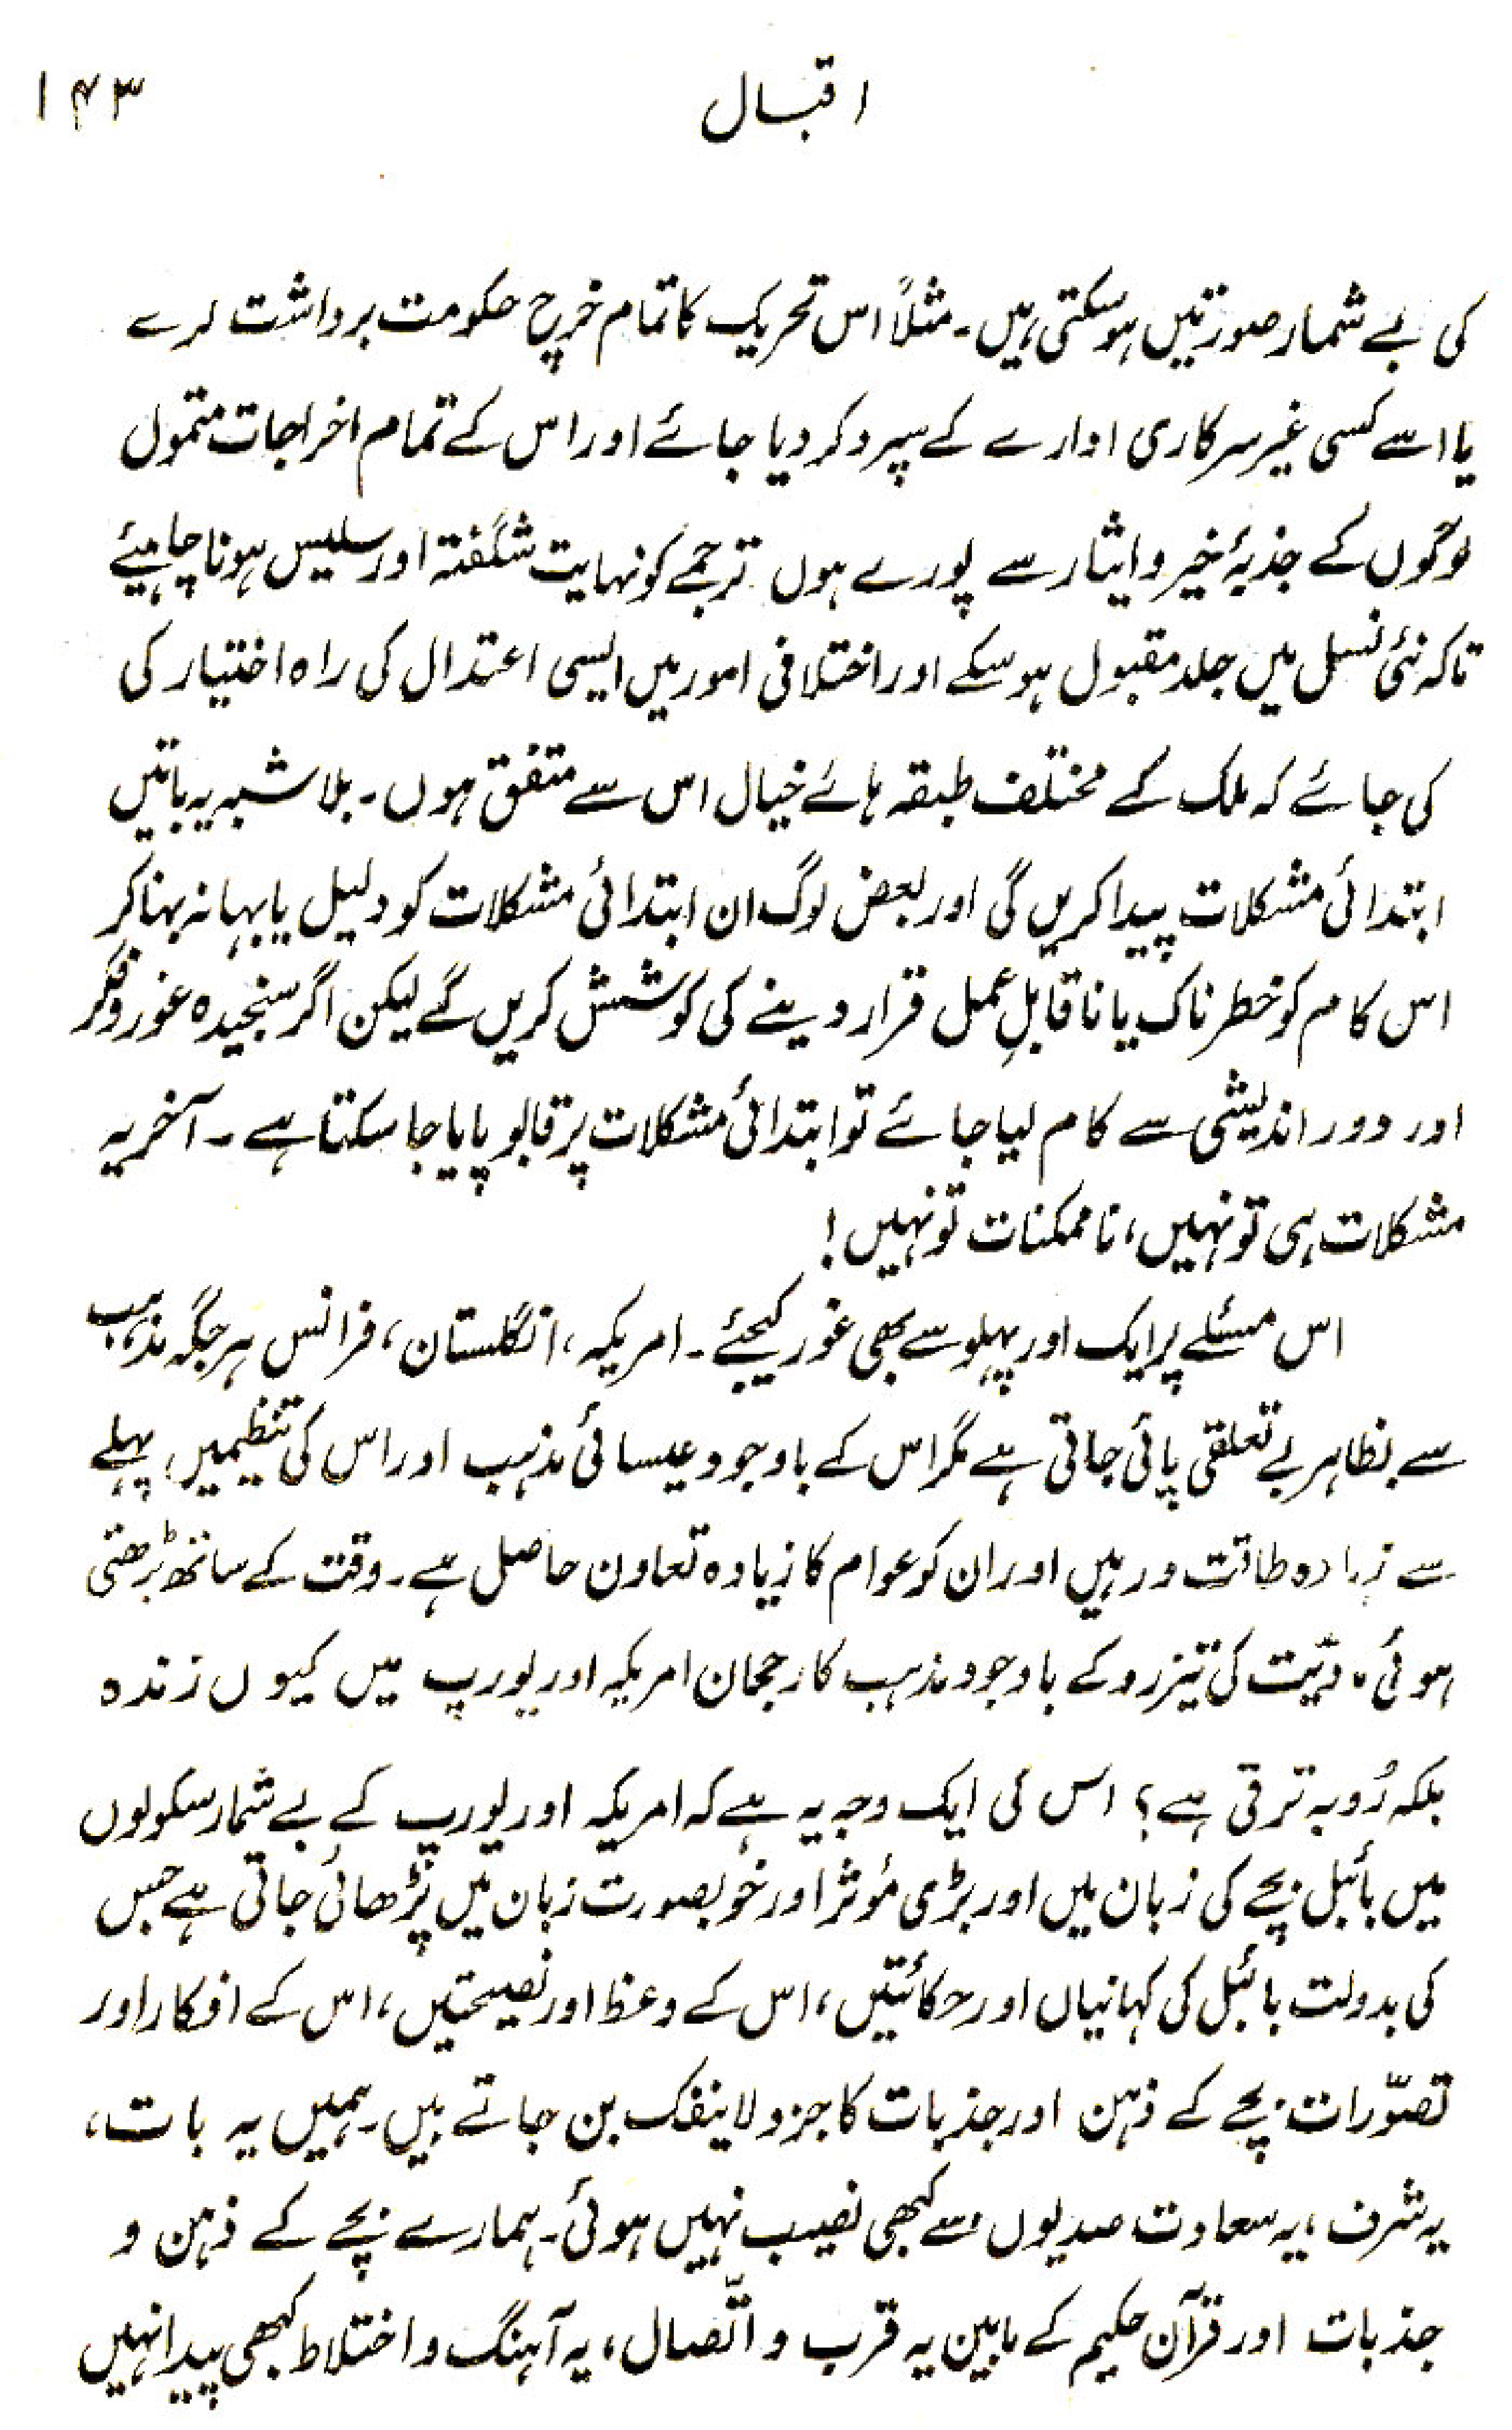 اقبال ۱۴۳
کی بے شمار صورتیں ہوسکتی ہیں۔ مثلاً اس تحریک کا تمام خرچ حکومت برداشت کرے
یا اسے کسی غیر سرکاری ادارے کے سپرد کر دیا جائے اور اس کے تمام اخراجات متمول
لوگوں کے جذبۂ خیر و ایثار سے پورے ہوں ترجمے کو نہایت شگفتہ اور سلیس ہونا چاہیئے
تاکہ نئی نسل میں جلد مقبول ہوسکے اور اختلافی امور میں ایسی اعتدال کی راہ اختیار کی
کی جائے کہ ملک کے مختلف طبقہ ہائے خیال اس سے متفق ہوں۔ بلاشبہ یہ باتیں
ابتدائی مشکلات پیدا کریں گی اور بعض لوگ ان ابتدائی مشکلات کو دلیل یا بہانہ بنا کر
اس کام کو خطرناک یا ناقابلِ عمل قرار دینے کی کوشش کریں گے لیکن اگر سنجیدہ غور و فکر
اور دور اندیشی سے کام لیا جائے تو ابتدائی مشکلات پر قابو پایا جاسکتا ہے۔ آخر یہ
مشکلات ہی تو نہیں، ناممکنات تو نہیں!
اس مسئلے پر ایک اور پہلو سے بھی غور کیجئے۔ امریکہ، انگلستان، فرانس ہر جگہ مذہب
سے بظاہر بے تعلقی پائی جاتی ہے مگر اس کے باوجود عیسائی مذہب اور اس کی تنظیمیں پہلے
سے زیادہ طاقت ور ہیں اور ان کو عوام کا زیادہ تعاون حاصل ہے۔ وقت کے ساتھ بڑھتی
ہوئی مادّیت کی تیز رو کے باوجود مذہب کا رجحان امریکہ اور یورپ میں کیوں زندہ
بلکہ رُو بہ ترقی ہے؟ اس کی ایک وجہ یہ ہے کہ امریکہ اور یورپ کے بے شمار سکولوں
میں بائبل بچے کی زبان میں اور بڑی مؤثر اور خوبصورت زبان میں پڑھائی جاتی ہے جس
کی بدولت بائبل کی کہانیاں اور حکائتیں، اس کے وعظ اور نصیحتیں، اس کے افکار اور
تصوّرات بچے کے ذہن اور جذبات کا جزو لاینفک بن جاتے ہیں۔ ہمیں یہ بات،
یہ شرف، یہ سعادت صدیوں سے کبھی نصیب نہیں ہوئی۔ ہمارے بچے کے ذہن و
جذبات اور قرآن حکیم کے مابین یہ قرب و اتّصال، یہ آہنگ و اختلاط کبھی پیدا نہیں